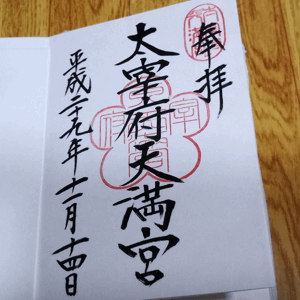 奉拝
太宰府天満宮
平成二十九年十二月十四日